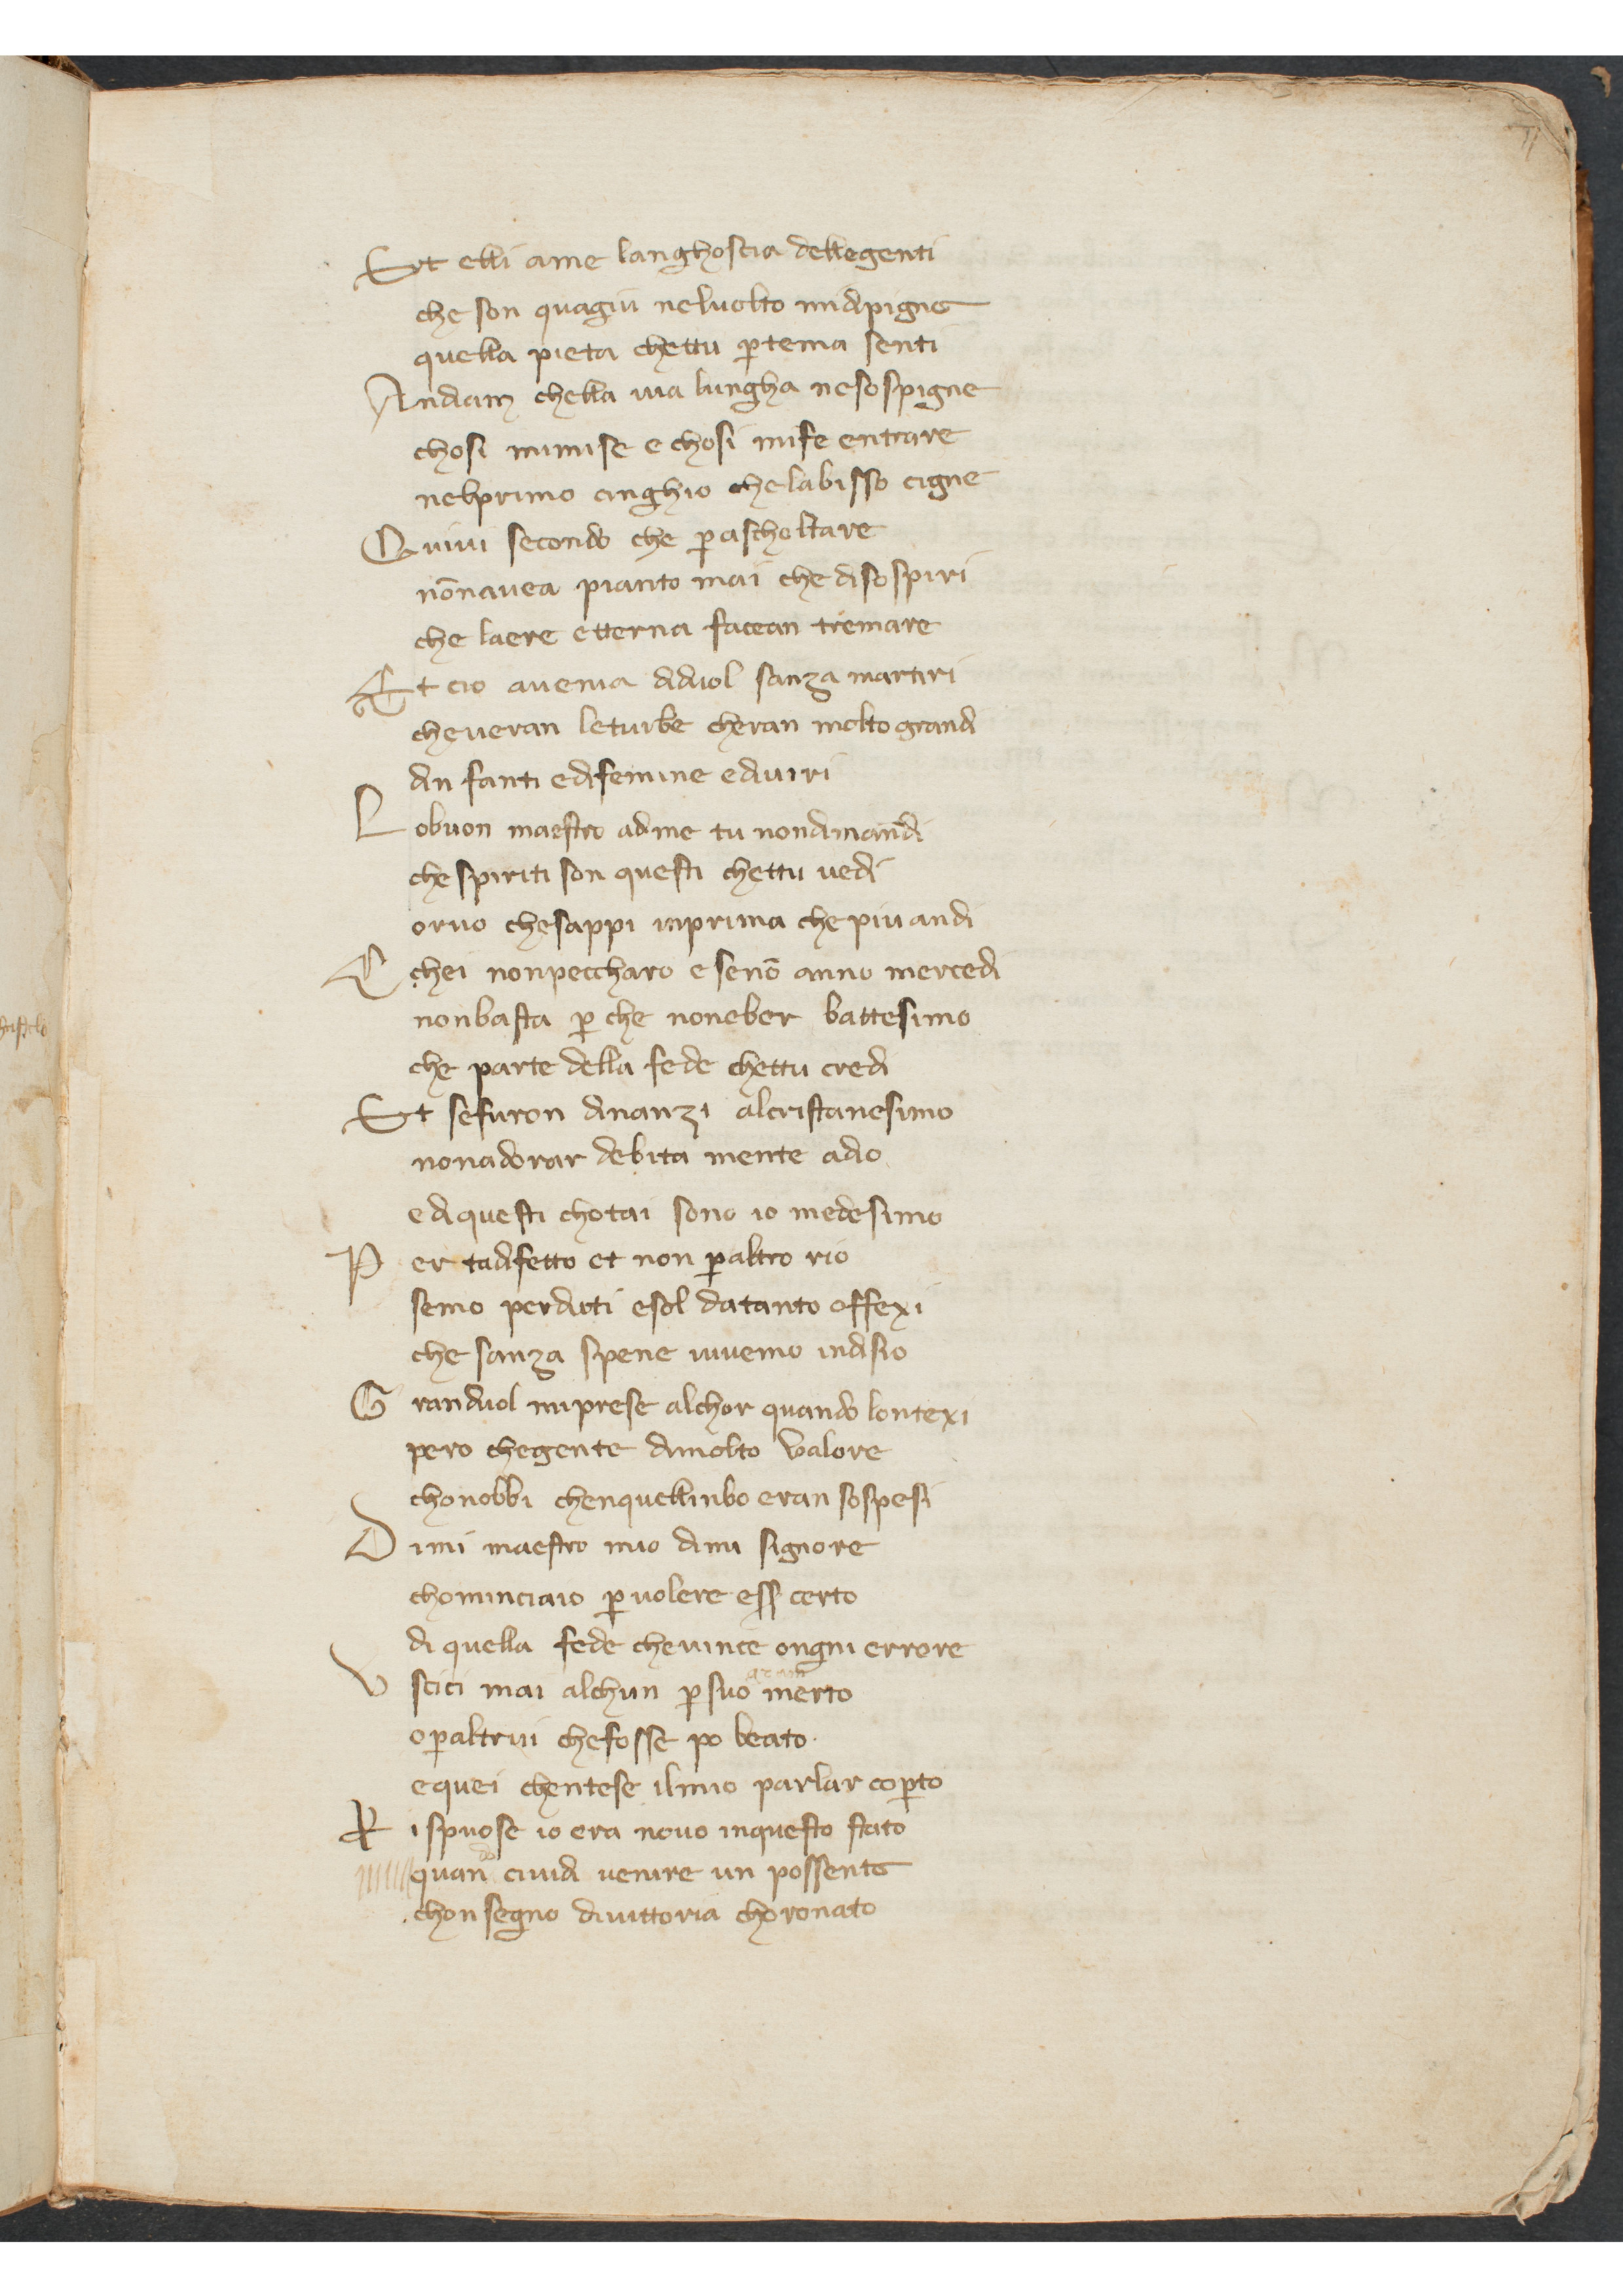 Et elli ame langhoscia dellegenti
che son quagiu neluolto midipigne
quella pieta chettu ꝑtema senti
Andiam chella uia lungha nesospigne
chosi mimise e chosi mife entrare
nelprimo cinghio chelabisso cigne
Quiui secondo che ꝑascholtare
nōnauea pianto mai che disospiri
che laere etterna facean tremare
Et cio auenia diduol sanza martiri
cheueran leturbe cheran molto grandi
din fanti edifemine ediuiri
Lobuon maestro adme tu nondimandi
che spiriti son questi chettu uedi
oruo chesappi inprima che piu andi
Echei nonpeccharo e senō anno mercedi
nonbasta ꝑ che noneber battesimo
che parte della fede chettu credi
Et sefuron dinanzi alcristianesimo
nonadorar debita mente adio
edi questi chotai sono io medesimo
Per tadifetto et non ꝑaltro rio
semo perduti esol datanto offexi
che sanza spene uiuemo indisio
Granduol miprese alchor quando lontexi
pero chegente dimolto valore
chonobbi chenquellinbo eran sospesi
Dimi maestro mio dimi signore
chominciaio ꝑ uolere ess certo
di quella fede cheuince ongni errore
Vscici mai alchun ꝑ suo merto
oꝑaltrui chefosse po beato.
equei chentese ilmio parlar coꝑto
Rispuose io era nouo inquesto stato
quando ciuidi uenire un possente
chon segno diuittoria choronato